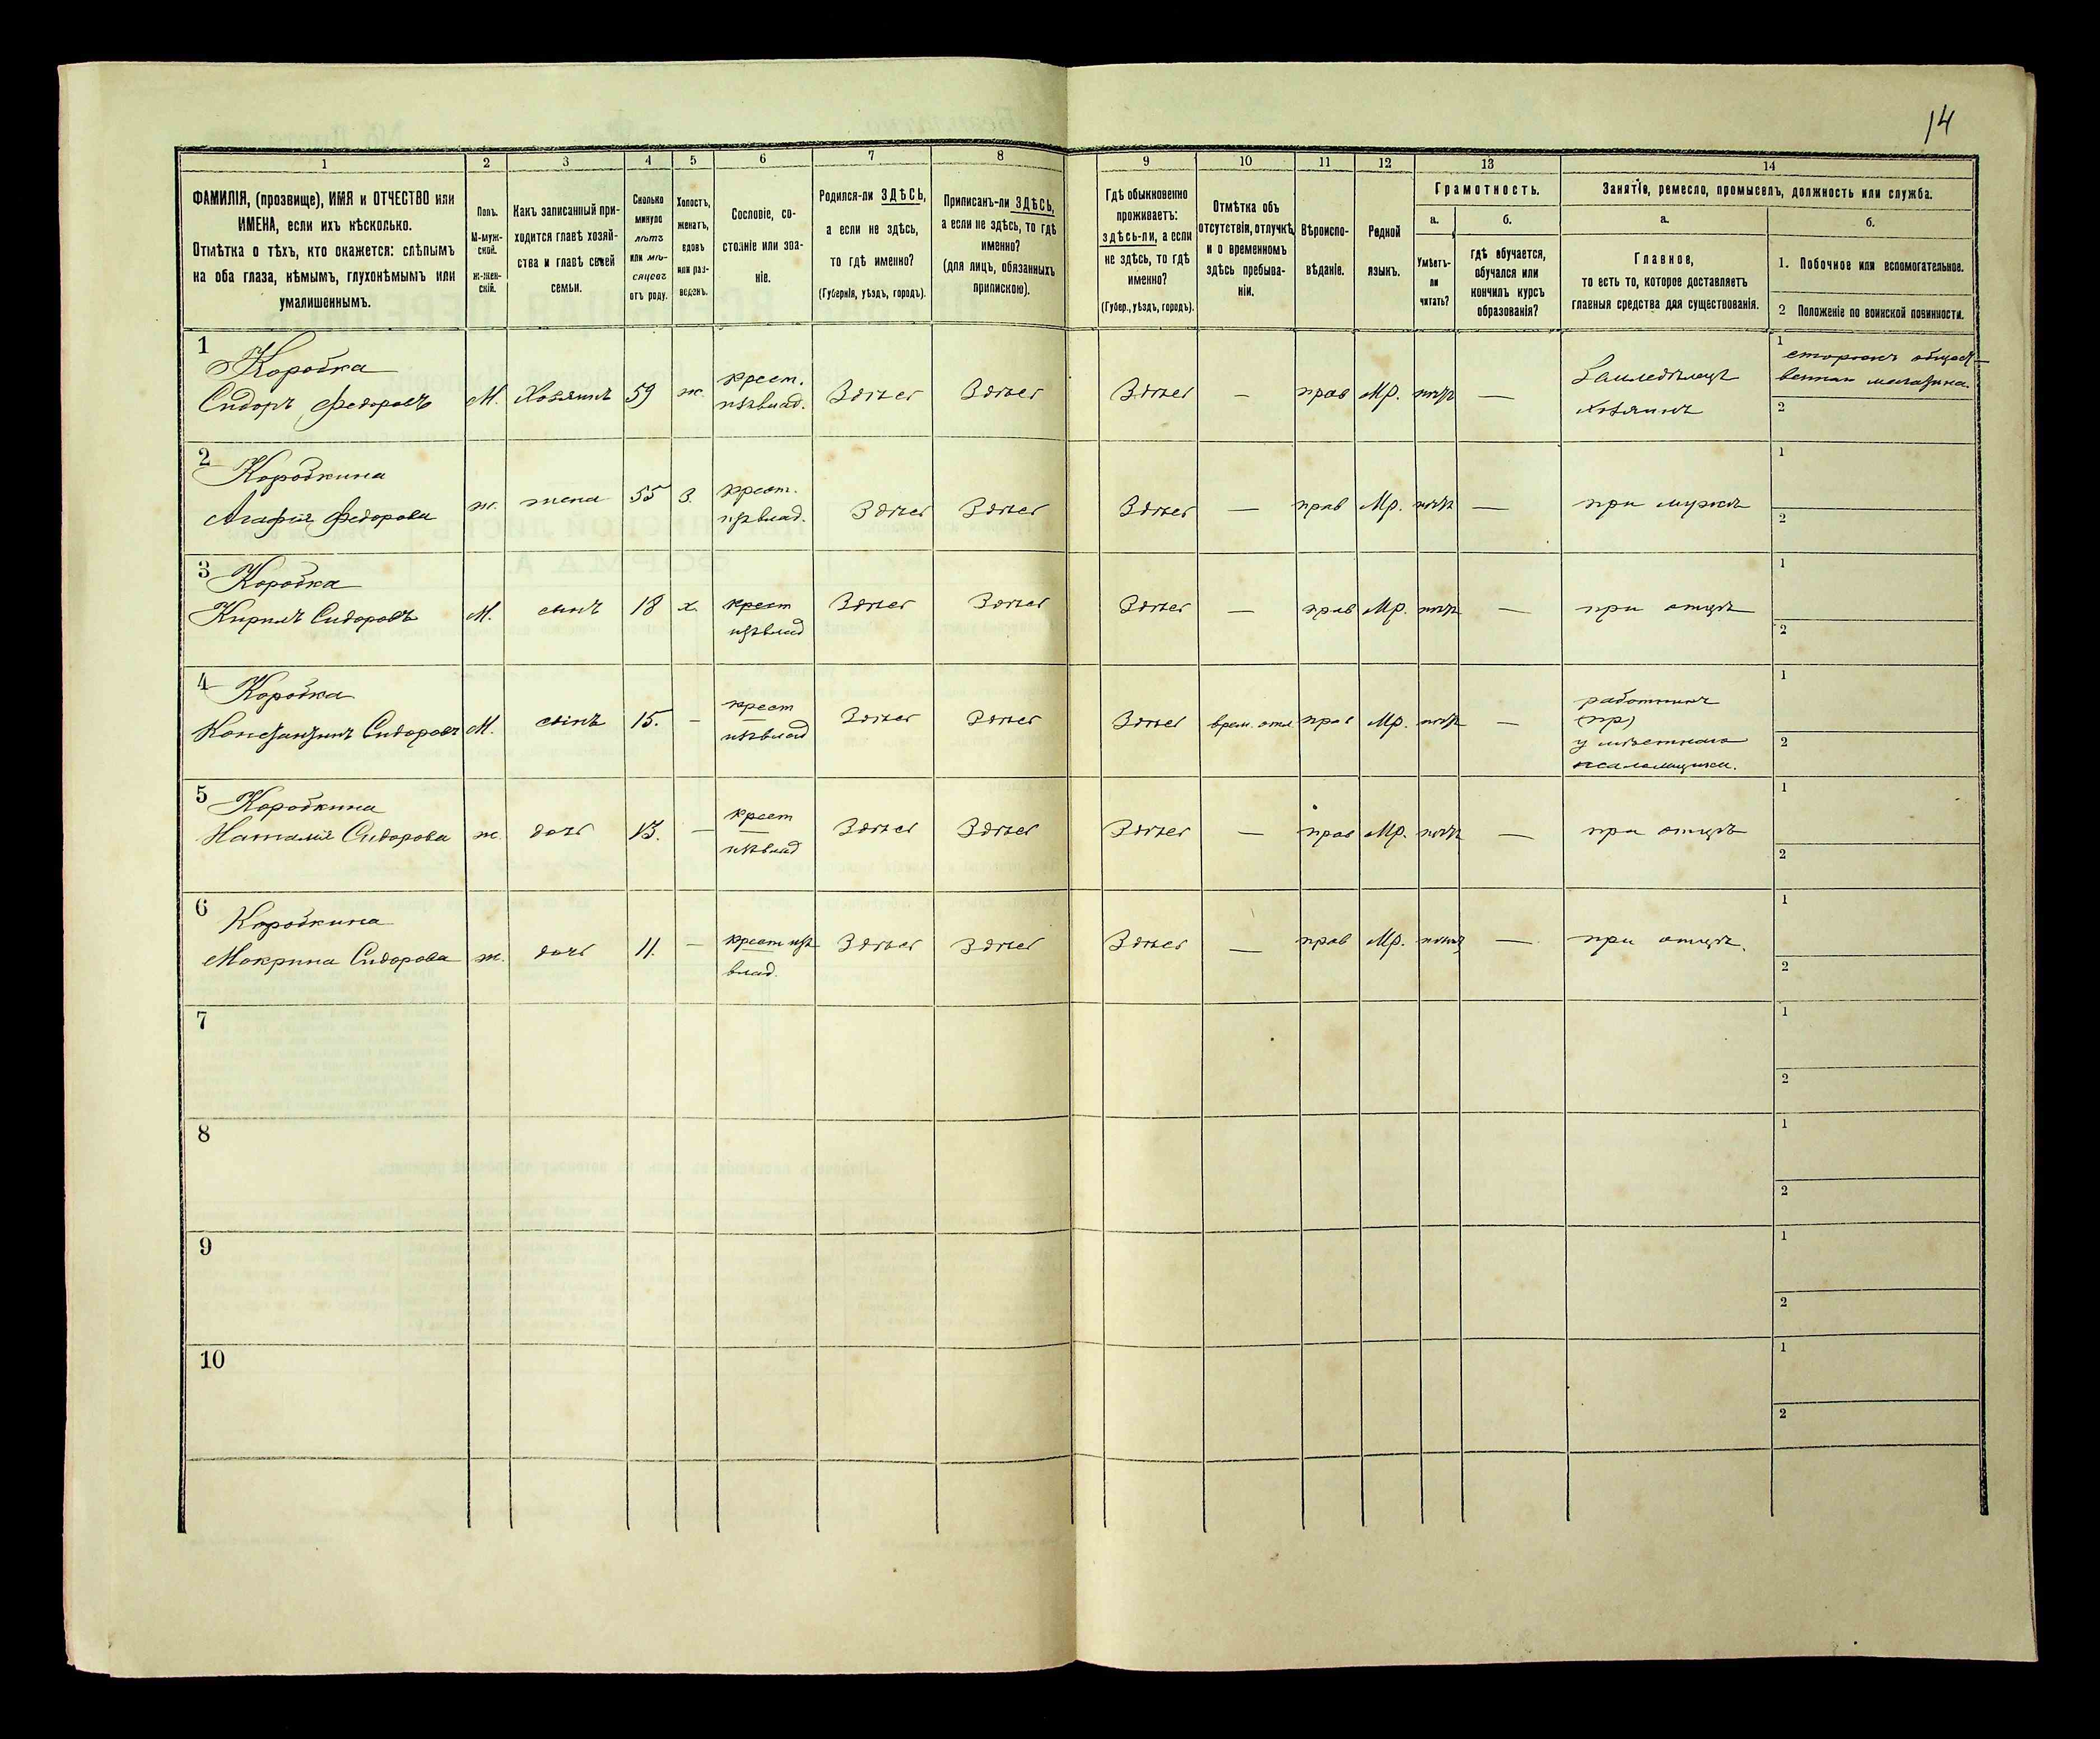 14
1 2 3 4 5 6 7 8 9 10 11 12 13 14
ФАМИЛІЯ, (прозвище), ИМЯ и ОТЧЕСТВО или
ИМЕНА, если ихъ нѣсколько.
Отмѣтка о тѣхъ, кто окажется: слѣпымъ
на оба глаза, нѣмымъ, глухонѣмымъ или
умалишеннымъ.
Полъ.
М-муж-
ской.
ж-жен-
скій.
Какъ записанный при-
ходится главѣ хозяй-
ства и главѣ своей
семьи.
Сколько
минуло
лѣтъ
или мѣ-
сяцевъ
отъ роду.
Холостъ,
женатъ,
вдовъ
или раз-
веденъ.
Сословіе, со-
стояніе или зва-
ніе.
Родился-ли ЗДѢСЬ,
а если не здѣсь,
то гдѣ именно?
(Губернія, уѣздъ, городъ).
Приписанъ-ли ЗДѢСЬ,
а если не здѣсь, то гдѣ
именно?
(для лицъ, обязанныхъ
припискою).
Гдѣ обыкновенно
проживаетъ:
здѣсь-ли, а если
не здѣсь, то гдѣ
именно?
(Губер., уѣздъ, городъ).
Отмѣтка объ
отсутствіи, отлучкѣ
и о временномъ
здѣсь пребыва-
ніи.
Вѣроиспо-
вѣданіе.
Родной
языкъ.
Грамотность.
а.
Умѣетъ-
ли
читать?
б.
гдѣ обучается,
обучался или
кончилъ курсъ
образованія?
Занятіе, ремесло, промыселъ, должность или служба.
а.
Главное,
то есть то, которое доставляетъ
главныя средства для существованія.
б.
1. Побочное или вспомогательное.
2 Положеніе по воинской повинности.
1 Коробка
Сидоръ Федоровъ М. Хозяинъ 59 ж. крест. Здѣсь Здѣсь Здѣсь — прав Мр. нѣтъ — Земледѣлецъ
хозяинъ
1 сторожъ общест-
веннаго магазина.
2
2 Коробкина
Агафія Федорова ж. жена 55 З. крест. Здѣсь Здѣсь Здѣсь — прав Мр. нѣтъ — при мужѣ
1
2
3 Коробка
Кирилъ Сидоровъ М. сынъ 18 х. крест Здѣсь Здѣсь Здѣсь — прав Мр. нѣтъ — при отцѣ
1
2
4 Коробка
Константинъ Сидоровъ М. сынъ 15. — крест Здѣсь Здѣсь Здѣсь врем. отл прав Мр. нѣтъ — работникъ
(пр)
у мѣстнаго
псаломщика.
1
2
5 Коробкина
Наталія Сидорова ж. дочь 13. — крест Здѣсь Здѣсь Здѣсь — прав Мр. нѣтъ — при отцѣ
1
2
6 Коробкина
Макрина Сидорова ж. дочь 11. — крест Здѣсь Здѣсь Здѣсь — прав Мр. нѣтъ — при отцѣ.
влад.
1
2
7
1
2
8
1
2
9
1
2
10
1
2